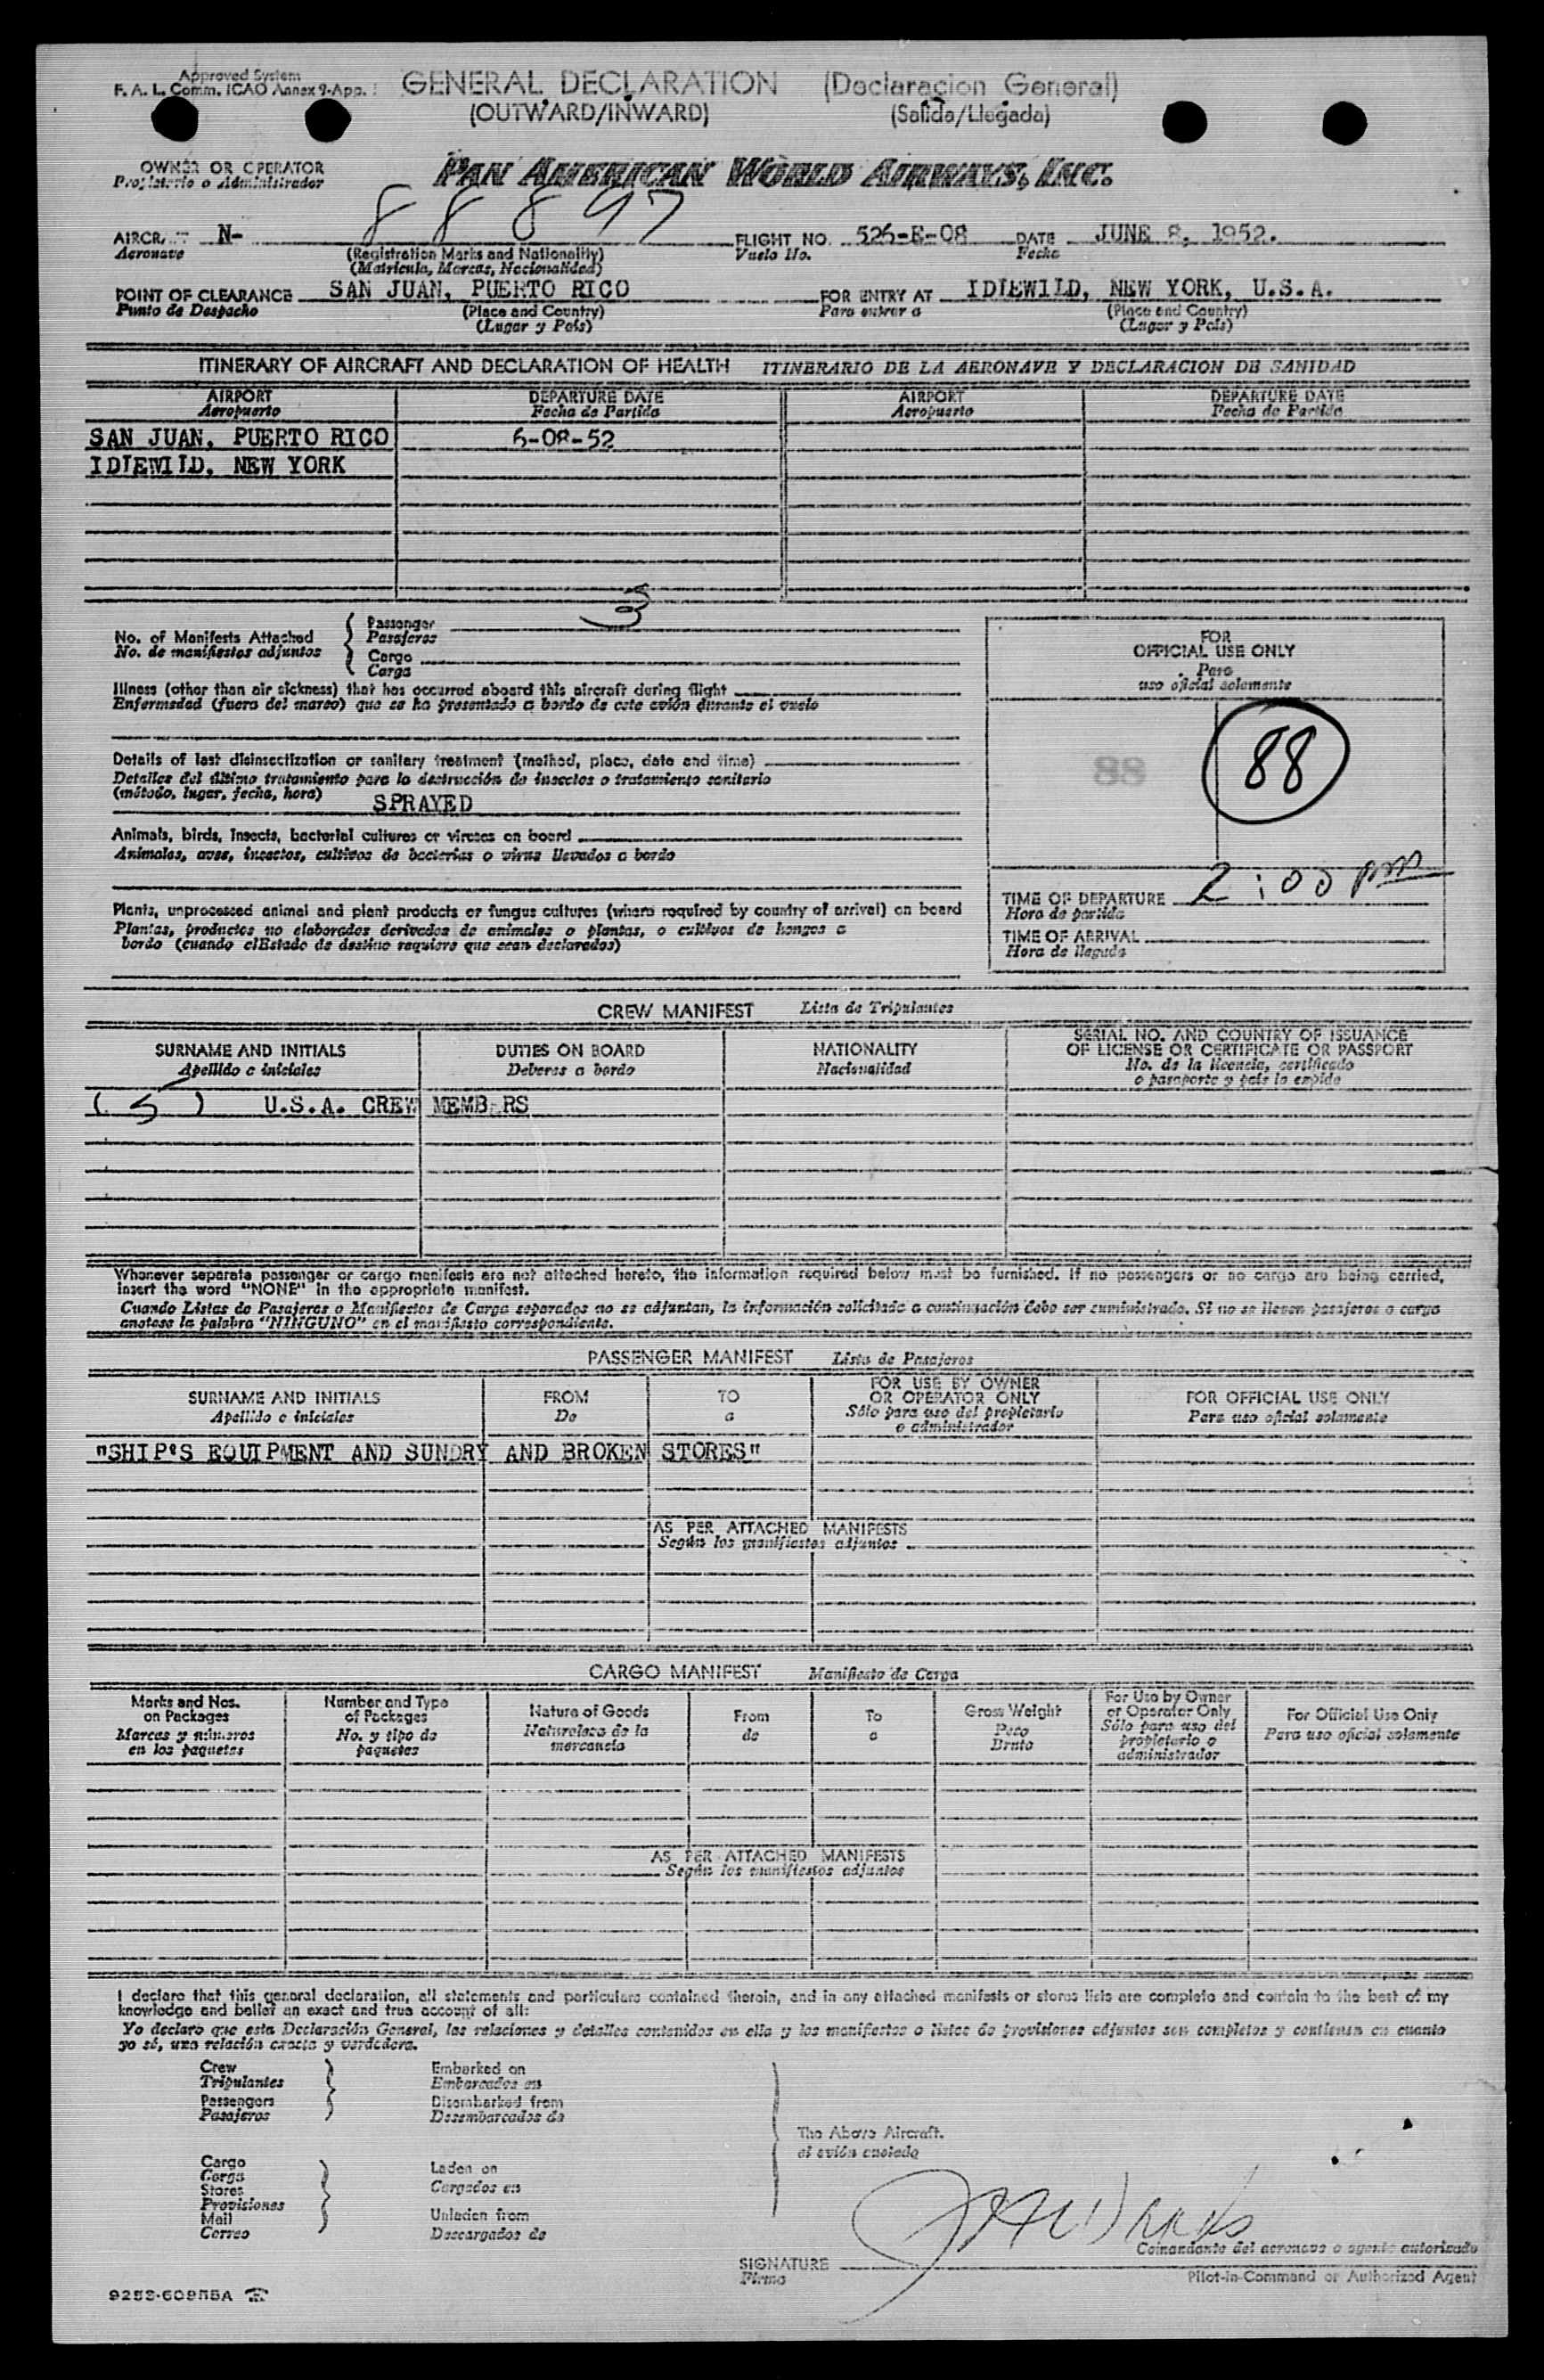 Approved System
F. A. L. Comm. ICAO Annex 9-App.
GENERAL DECLARATION (Declaracion General)
(OUTWARD/INWARD) (Salida/Llegada)
OWNER OR OPERATOR
Propietario o Administrador
PAN AMERICAN WORLD AIRWAYS, INC.
AIRCRAFT N- 88897 FLIGHT NO. 526-E-08 DATE JUNE 8, 1952.
Aeronave (Registration Marks and Nationality) Vuelo No. Fecha
(Matricula, Marcas, Nacionalidad)
POINT OF CLEARANCE SAN JUAN, PUERTO RICO FOR ENTRY AT IDLEWILD, NEW YORK, U.S.A.
Punto de Despacho (Place and Country) Para entrar a (Place and Country)
(Lugar y País) (Lugar y País)
ITINERARY OF AIRCRAFT AND DECLARATION OF HEALTH ITINERARIO DE LA AERONAVE Y DECLARACION DE SANIDAD
AIRPORT DEPARTURE DATE AIRPORT DEPARTURE DATE
Aeropuerto Fecha de Partida Aeropuerto Fecha de Partida
SAN JUAN, PUERTO RICO 6-08-52
IDLEWILD, NEW YORK
3
No. of Manifests Attached
No. de manifiestos adjuntos
Passenger
Pasajeros
Cargo
Carga
Illness (other than air sickness) that has occurred aboard this aircraft during flight
Enfermedad (fuera del mareo) que se ha presentado a bordo de este avión durante el vuelo
Details of last disinsectization or sanitary treatment (method, place, date and time)
Detalles del último tratamiento para la destrucción de insectos o tratamiento sanitario
(método, lugar, fecha, hora) SPRAYED
Animals, birds, insects, bacterial cultures or viruses on board
Animales, aves, insectos, cultivos de bacterias o virus llevados a bordo
Plants, unprocessed animal and plant products or fungus cultures (where required by country of arrival) on board
Plantas, productos no elaborados derivados de animales o plantas, o cultivos de hongos a
bordo (cuando el Estado de destino requiere que sean declarados)
FOR
OFFICIAL USE ONLY
Para
uso oficial solamente
88 88
TIME OF DEPARTURE 2:00 pm
Hora de partida
TIME OF ARRIVAL
Hora de llegada
CREW MANIFEST Lista de Tripulantes
SURNAME AND INITIALS DUTIES ON BOARD NATIONALITY SERIAL NO. AND COUNTRY OF ISSUANCE
OF LICENSE OR CERTIFICATE OR PASSPORT
Apellido e iniciales Deberes a bordo Nacionalidad No. de la licencia, certificado
o pasaporte y país lo expide
( 5 ) U.S.A. CREW MEMBERS
Whenever separate passenger or cargo manifests are not attached hereto, the information required below must be furnished. If no passengers or no cargo are being carried,
insert the word "NONE" in the appropriate manifest.
Cuando Listas de Pasajeros o Manifiestos de Carga separados no se adjuntan, la información solicitada a continuación debe ser suministrada. Si no se llevan pasajeros o carga
anotese la palabra "NINGUNO" en el manifiesto correspondiente.
PASSENGER MANIFEST Lista de Pasajeros
SURNAME AND INITIALS FROM TO FOR USE BY OWNER
OR OPERATOR ONLY FOR OFFICIAL USE ONLY
Apellido e iniciales De a Sólo para uso del propietario
o administrador Para uso oficial solamente
"SHIP'S EQUIPMENT AND SUNDRY AND BROKEN STORES"
AS PER ATTACHED MANIFESTS
Según los manifiestos adjuntos
CARGO MANIFEST Manifiesto de Carga
Marks and Nos.
on Packages
Marcas y números
en los paquetes
Number and Type
of Packages
No. y tipo de
paquetes
Nature of Goods
Naturaleza de la
mercancía
From
de
To
a
Gross Weight
Peso
Bruto
For Use by Owner
or Operator Only
Sólo para uso del
propietario o
administrador
For Official Use Only
Para uso oficial solamente
AS PER ATTACHED MANIFESTS
Según los manifiestos adjuntos
I declare that this general declaration, all statements and particulars contained therein, and in any attached manifests or stores lists are complete and contain to the best of my
knowledge and belief an exact and true account of all:
Yo declaro que esta Declaración General, las relaciones y detalles contenidos en ella y los manifiestos o listas de provisiones adjuntos son completos y contienen en cuanto
yo sé, una relación exacta y verdadera.
Crew
Tripulantes
Passengers
Pasajeros
Embarked on
Embarcados en
Disembarked from
Desembarcados de
The Above Aircraft.
el avión
Cargo
Carga
Stores
Provisiones
Mail
Correo
Laden on
Cargados en
Unladen from
Descargados de
Comandante del aeronave o agente autorizado
SIGNATURE
Firma
Pilot-in-Command or Authorized Agent